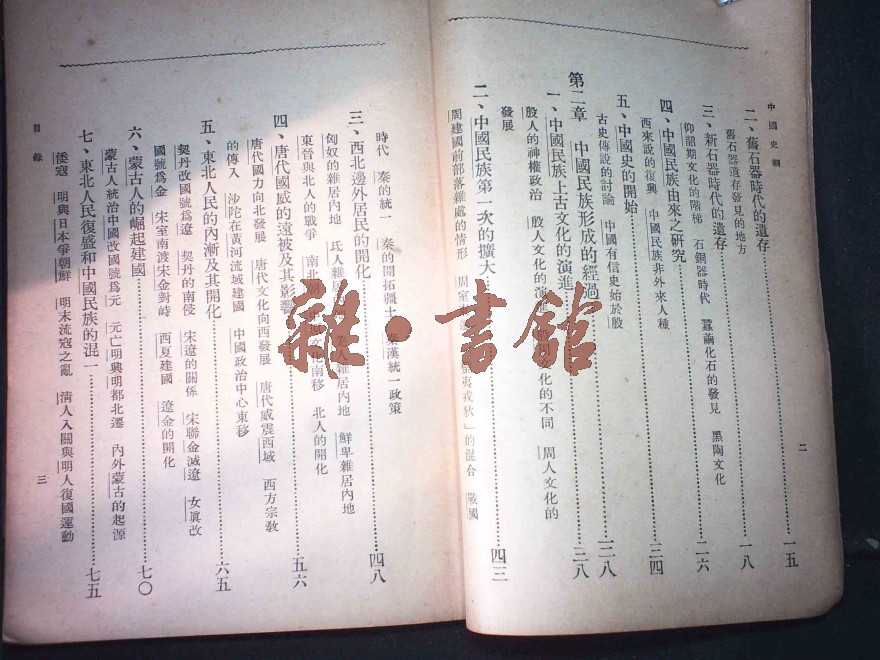 中國史綱
二
二、舊石器時代的遺存……一五
舊石器遺存發見的地方
三、新石器時代的遺存……一八
仰韶期文化的階梯 石銅器時代 蠶繭化石的發見 黑陶文化
四、中國民族由來之研究……二六
西來說的復興 中國民族非外來人種
五、中國史的開始……三四
古史傳說的討論 中國有信史始於殷
第二章 中國民族形成的經過……三八
一、中國民族上古文化的演進……三八
殷人的神權政治 殷人文化的演進 文化的不同 周人文化的
發展
二、中國民族第一次的擴大……四三
周建國前部落雜處的情形 周室 蠻夷戎狄」的混合 戰國
時代 秦的統一 秦的開拓疆土 秦漢統一政策
三、西北邊外居民的開化……四八
匈奴的雜居內地 氐人雜居內地 羌人雜居內地 鮮卑雜居內地
東晉與北人的戰爭 南北朝 文化南移 北人的開化
四、唐代國威的遠被及其影響……五六
唐代國力向北發展 唐代文化向西發展 唐代威震西域 西方宗教
的傳入 沙陀在黃河流域建國 中國政治中心東移
五、東北人民的內漸及其開化……六五
契丹改國號爲遼 契丹的南侵 宋遼的關係 宋聯金滅遼 女眞改
國號爲金 宋室南渡宋金對峙 西夏建國 遼金的開化
六、蒙古人的崛起建國……七〇
蒙古人統治中國改國號爲元 元亡明興明都北遷 內外蒙古的起源
七、東北人民復盛和中國民族的混一……七五
倭寇 明與日本爭朝鮮 明末流寇之亂 淸人入關與明人復國運動
目錄
三
雜·書館